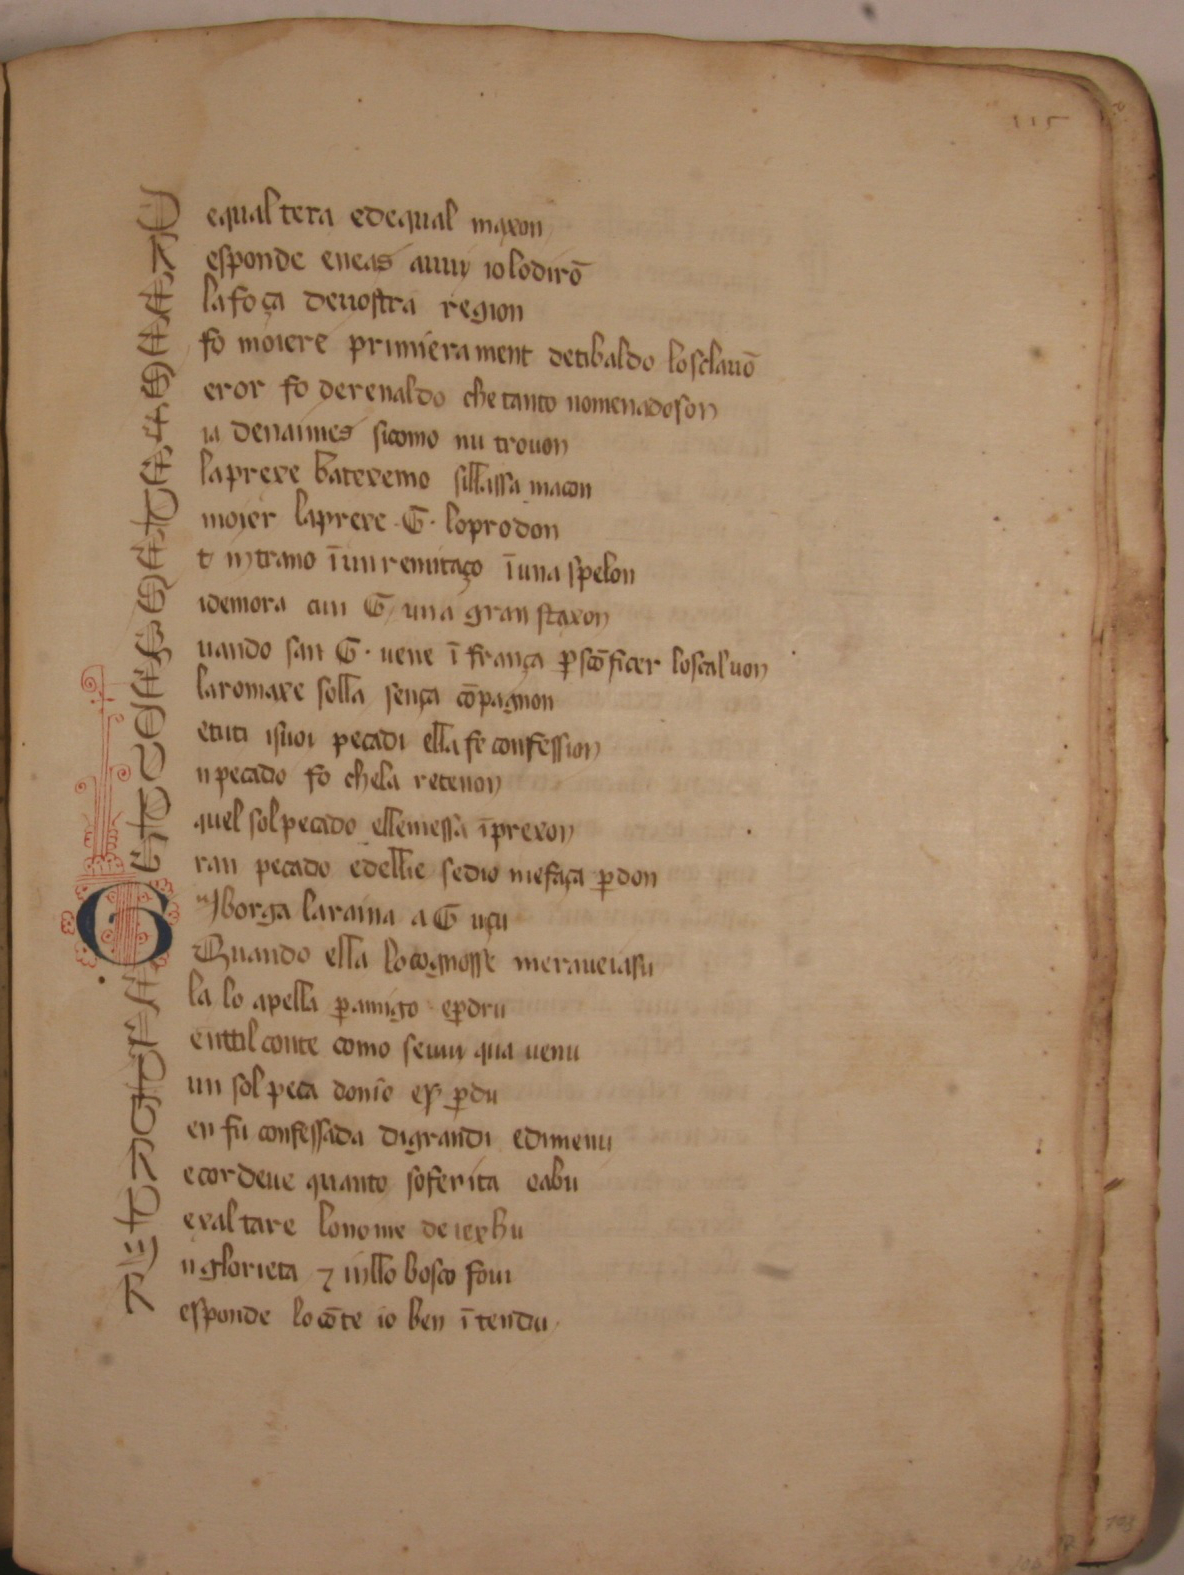 115
D equal tera edequal maxon
R esponde eneas auuy io lodirō
E lafoça deuostra region
E fo moiere primierament detibaldo losclauō
S eror fo derenaldo chetanto nomenadoson
F ia denaimes sicomo nu trouon
E laprexe batexemo sillassa macon
P moier laprexe ·G· loprodon
E t intrano ī un remitaço ī una spelon
G idemora cun G· una gran staxon
Q uando san G· uene ī frança ꝑ scōficer loscaluon
E laromaxe solla sença cōpagnon
D etuti isuoi pecadi ella fe confession
U n pecado fo chela retenon
P quel sol pecado ellemessa īprexon
G ran pecado edellie sedio nefaça ꝑdon
G yborga laraina a G uçu
Quando ella locognosse meraueiasu
E la lo apella ꝑ amigo eꝑdru
E nttil conte como seuuy qua uenu
P un sol peca
B en fu confessada digrandi edimenu
R ecordeue quanto soferita eabu
P exaltare lonome de iexhu
I n glorieta ⁊ inllo bosco foui
R esponde locōte io ben ītendu